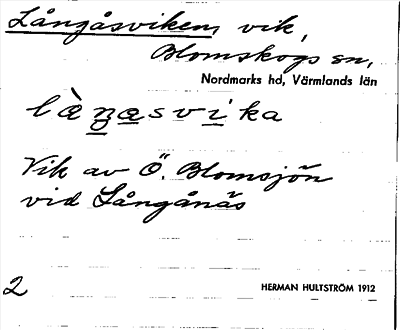 Långåsviken, vik,
Blomskogs sn,
Nordmarks hd, Värmlands län
làn̲a̲svi̲ka
Vik av Ö. Blomsjön
vid Långånäs
2
HERMAN HULTSTRÖM 1912